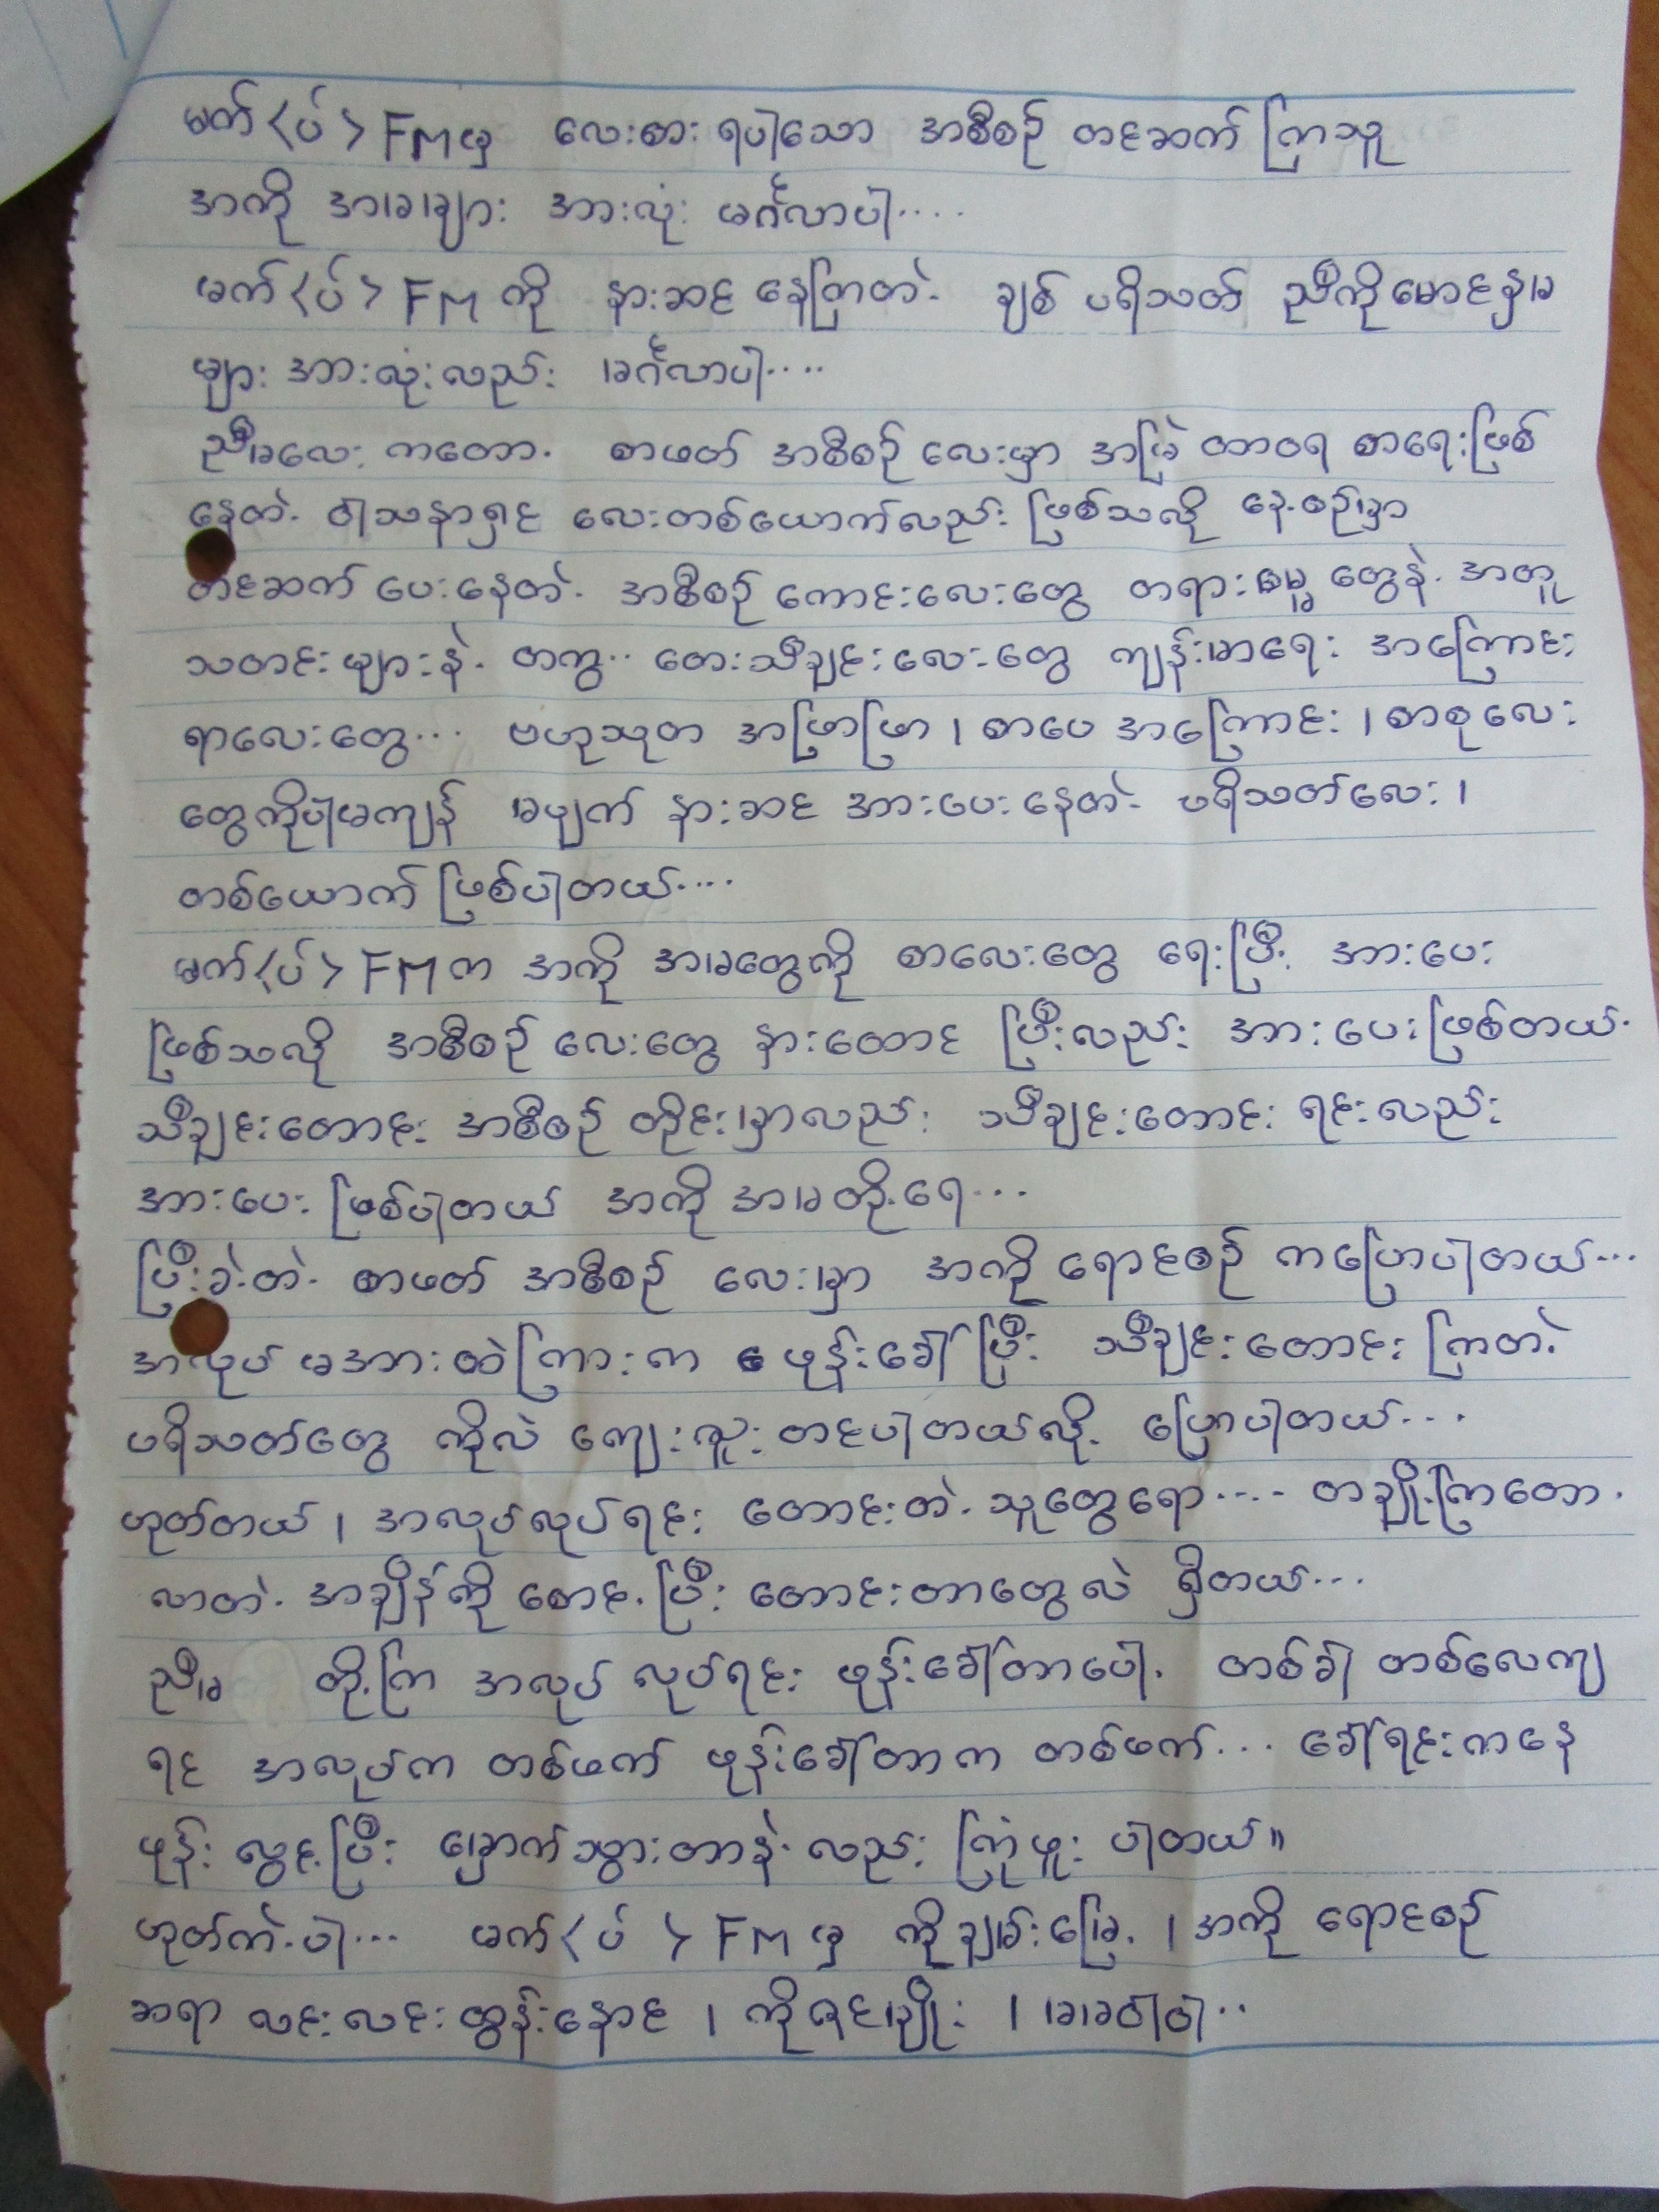 မက်<ပ်> FM မှ လေးစား ရပါသော အစီစဉ် တင်ဆက် ကြသူ
အကို အမများ အားလုံး မင်္ဂလာပါ....
မက်<ပ်> FM ကို နားဆင် နေကြတဲ့ ချစ် ပရိသတ် ညီကိုမောင်နှမ
များ အားလုံးလည်း မင်္ဂလာပါ....
ညီမလေး ကတော့ စာဖတ် အစီစဉ် လေးမှာ အမြဲ တာဝရ စာရေးဖြစ်
နေတဲ့ ဝါသနာရှင် လေးတစ်ယောက်လည်း ဖြစ်သလို နေ့စဉ်မှာ
တင်ဆက် ပေးနေတဲ့ အစီစဉ် ကောင်းလေးတွေ တရားဓမ္မ တွေနဲ့ အတူ
သတင်းများနဲ့ တကွ.. တေးသီချင်းလေးတွေ ကျန်းမာရေး အကြောင်း
ရာလေးတွေ... ဗဟုသုတ အဖြာဖြာ ၊ စာပေ အကြောင်း ၊ စာစုလေး
တွေကိုပါမကျန် မပျက် နားဆင် အားပေးနေတဲ့ ပရိသတ်လေး ၊
တစ်ယောက် ဖြစ်ပါတယ်....
မက်<ပ်> FM က အကို အမတွေကို စာလေးတွေ ရေးပြီး အားပေး
ဖြစ်သလို အစီစဉ် လေးတွေ နားထောင် ပြီးလည်း အားပေးဖြစ်တယ်.
သီချင်းတောင်း အစီစဉ် တိုင်းမှာလည်း သီချင်းတောင်း ရင်းလည်း
အားပေး ဖြစ်ပါတယ် အကို အမတို့ရေ...
ပြီးခဲ့တဲ့ စာဖတ် အစီစဉ် လေးမှာ အကို ရောင်စဉ် ကပြောပါတယ်...
အလုပ် မအားထဲကြားက ဖုန်းခေါ်ပြီး သီချင်းတောင်း ကြတဲ့
ပရိသတ်တွေ ကိုလဲ ကျေးဇူးတင်ပါတယ်လို့ ပြောပါတယ်...
ဟုတ်တယ် ၊ အလုပ်လုပ်ရင်း တောင်းတဲ့ သူတွေရော.... တချို့ကြတော့
လာတဲ့ အချိန်ကို စောင့်ပြီး တောင်းတာတွေလဲ ရှိတယ်...
ညီမ တို့ကြ အလုပ် လုပ်ရင်း ဖုန်းခေါ်တာပေါ့ တစ်ခါ တစ်လေကျ
ရင် အလုပ်က တစ်ဖက် ဖုန်းခေါ်တာက တစ်ဖက်... ခေါ်ရင်းကနေ
ဖုန်း လွင့်ပြီး မြောက်သွားတာနဲ့ လည်း ကြုံဖူး ပါတယ်။
ဟုတ်ကဲ့ပါ... မက်<ပ်> FM မှ ကိုချမ်းမြေ့ ၊ အကို ရောင်စဉ်
ဆရာ လင်းလင်းထွန်းနောင် ၊ ကိုဇင်မျိုး ၊ မမဝါဝါ..